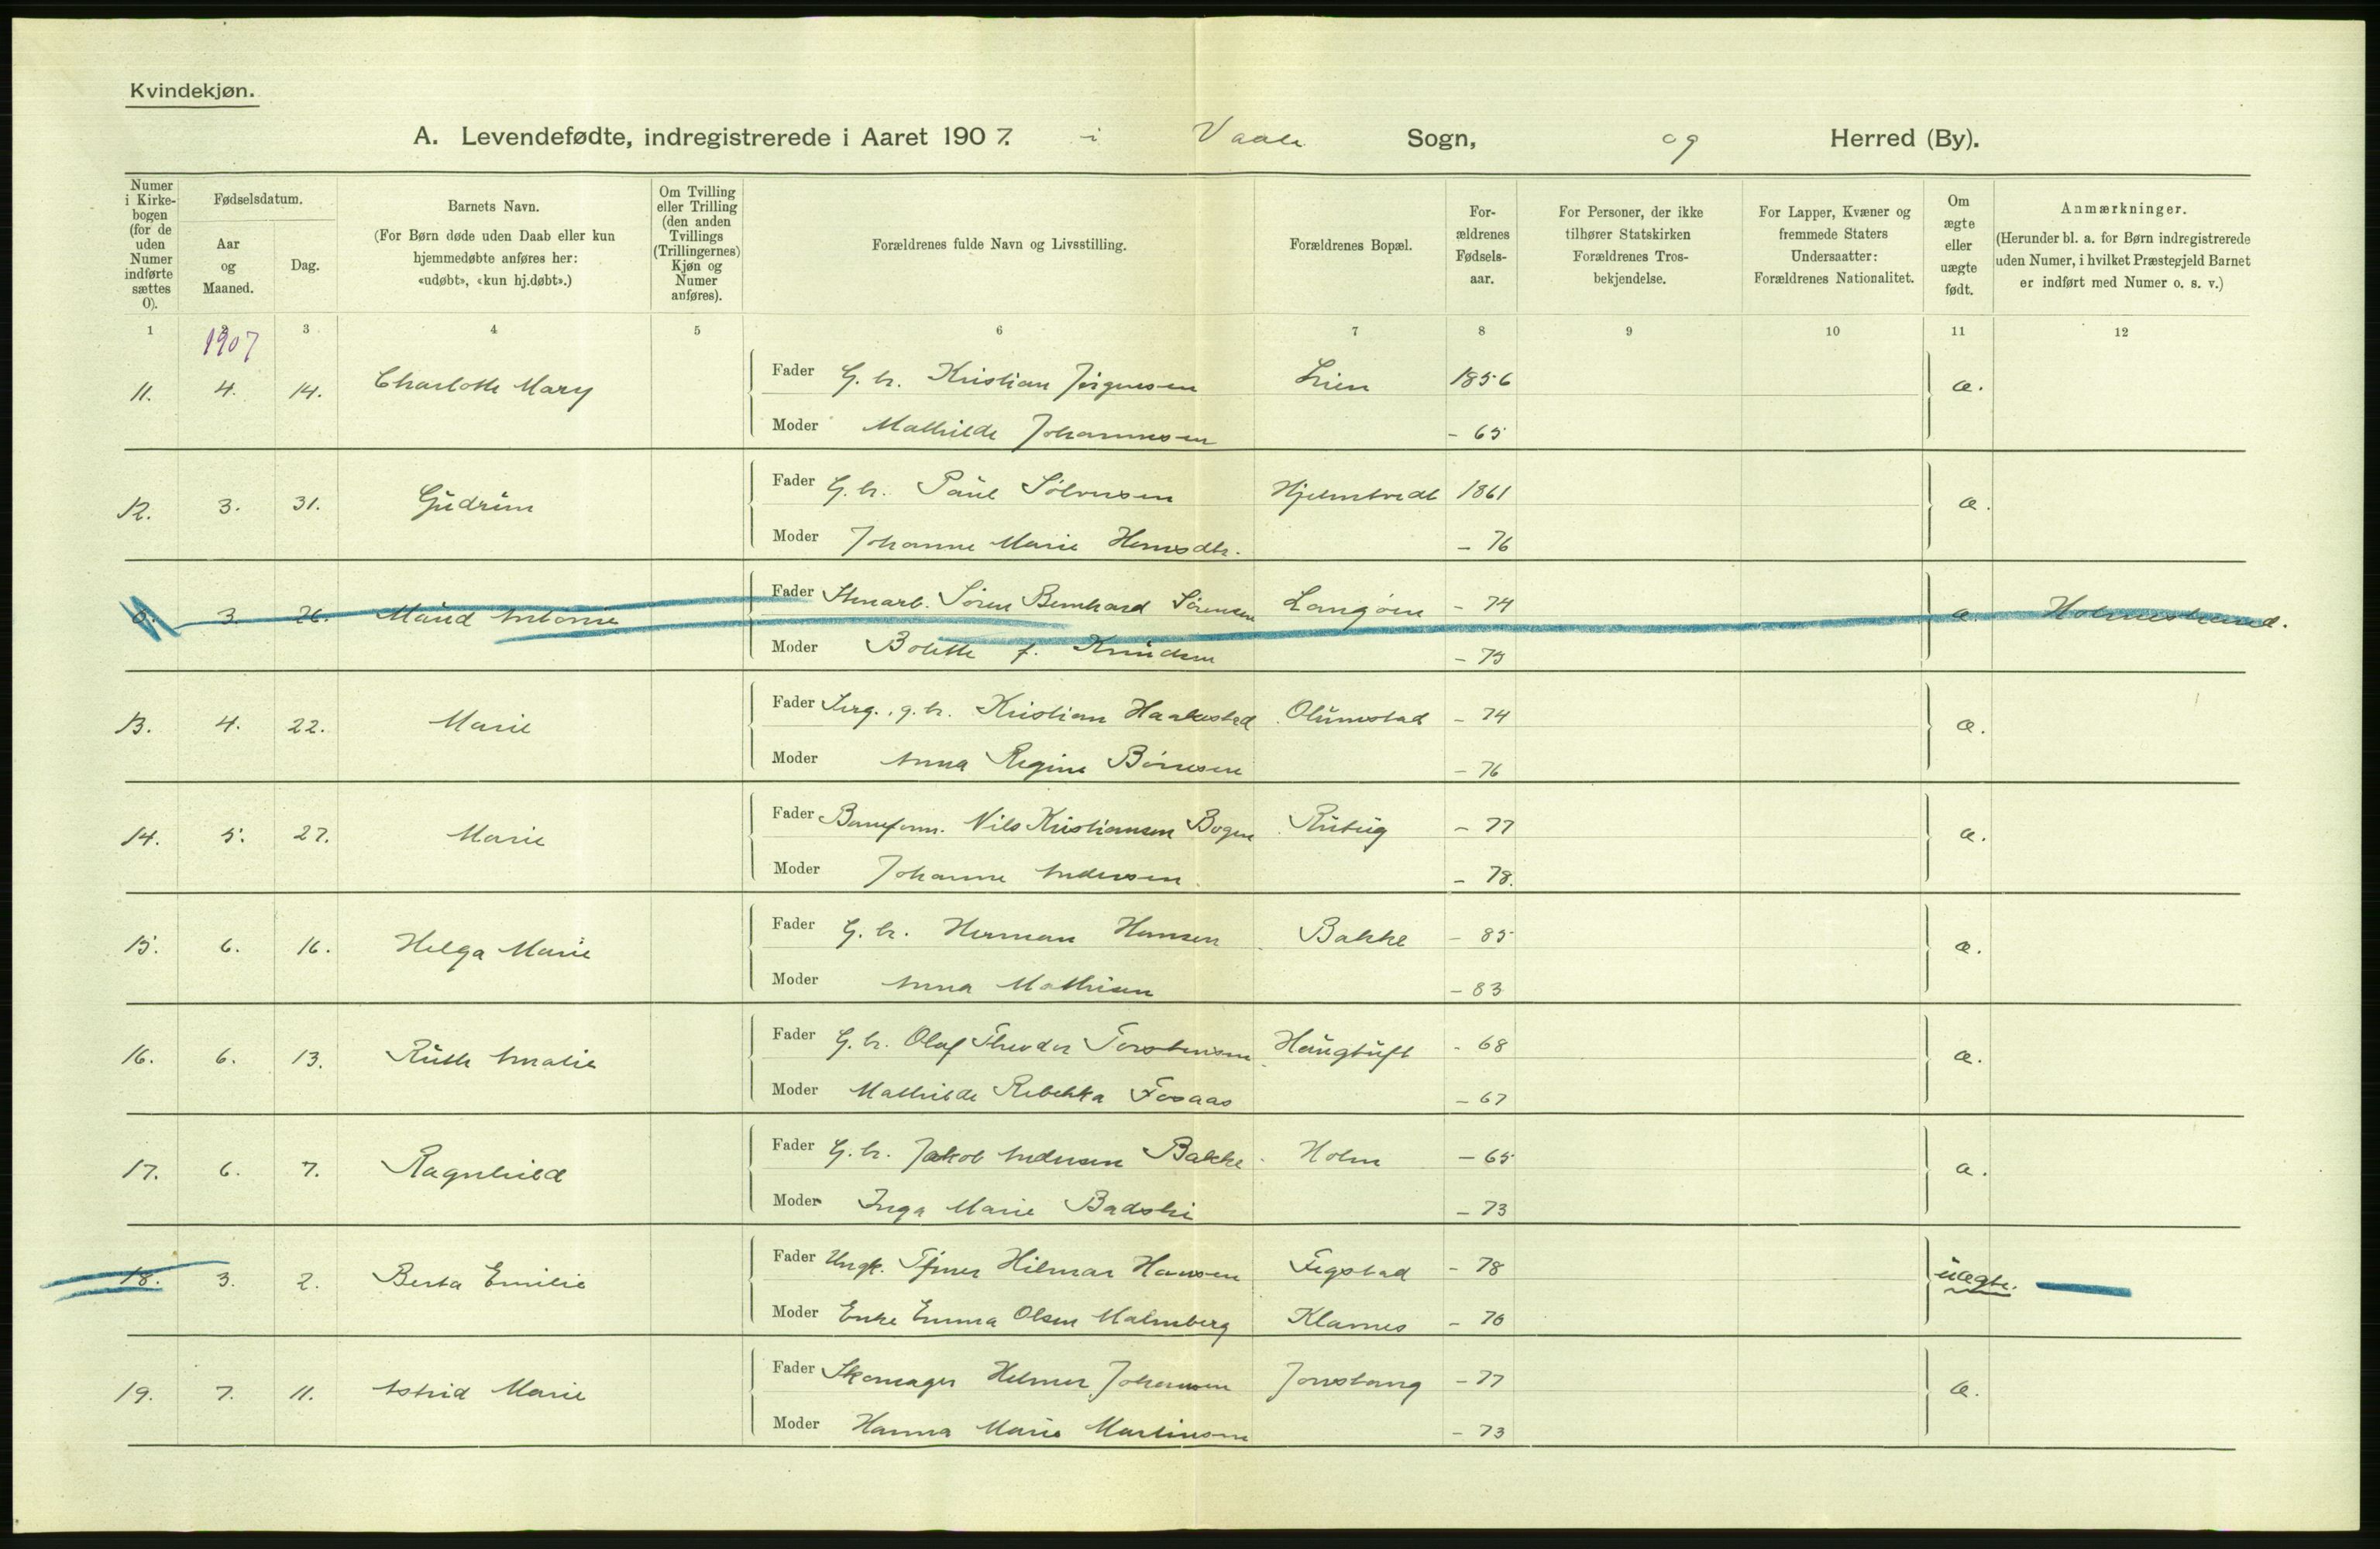 Kvindekjøn.
A. Levendefødte, indregistrerede i Aaret 1907. i Vaale Sogn, og Herred (By).
Numer i Kirkebogen (for de uden Numer indførte sættes 0).
Fødselsdatum.
Aar og Maaned.
Dag.
Barnets Navn.
(For Børn døde uden Daab eller kun hjemmedøbte anføres her: «udøbt», «kun hj.døbt».)
Om Tvilling eller Trilling (den anden Tvillings (Trillingernes) Kjøn og Numer anføres).
Forældrenes fulde Navn og Livsstilling.
Forældrenes Bopæl.
For-ældrenes Fødsels-aar.
For Personer, der ikke tilhører Statskirken Forældrenes Tros-bekjendelse.
For Lapper, Kvæner og fremmede Staters Undersaatter: Forældrenes Nationalitet.
Om ægte eller uægte født.
Anmærkninger.
(Herunder bl. a. for Børn indregistrerede uden Numer, i hvilket Præstegjeld Barnet er indført med Numer o. s. v.)
1 2 3 4 5 6 7 8 9 10 11 12
1907
11. 4. 14. Charlotte Mary Fader G.br. Kristian Jørgensen Lien 1856 æ.
Moder Mathilde Johannesen - 65
12. 3. 31. Gudrun Fader G.br. Paul Sølvesen 1861 æ.
Moder Johanne Marie Hansdtr. - 76
0. 3. 26. Maud Antonie Fader Stenarb. Søren Bernhard Sørensen Langøen - 74 æ. Holmestrand.
Moder Bolette f. Knudsen - 75
13. 4. 22. Marie Fader Serg., g.br. Kristian Haakestad Olumstad - 74 æ.
Moder Anna Regine Børresen - 76
14. 5. 27. Marie Fader Baneform. Nils Kristiansen Bogen - 77 æ.
Moder Johanne Andersen - 78.
15. 6. 16. Helga Marie Fader G.br. Herman Hansen Bakke - 85 æ.
Moder Anna Mathisen - 83
16. 6. 13. Ruth Amalie Fader G.br. Olaf Theodor Torstensen Haugtuft - 68 æ.
Moder Mathilde Rebekka Fosaas - 67
17. 6. 7. Ragnhild Fader G.br. Jakob Andersen Bakke Holm - 65 æ.
Moder Inga Marie Badski - 73
18. 3. 2. Berta Emilie Fader Ungk. Hilmar Hansen Fegstad - 78 uægte.
Moder Enke Emma Olsen Malmberg Klavnes - 76
19. 7. 11. Astrid Marie Fader Skomager Helmer Johansen Jonstang - 77 æ.
Moder Hanna Marie Martinsen - 73